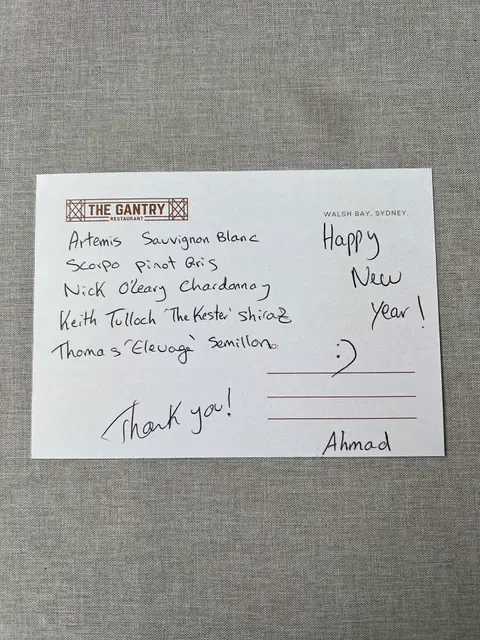 THE GANTRY
RESTAURANT
WALSH BAY, SYDNEY.
Artemis Sauvignon Blanc
Scorpo pinot Gris
Nick O'Leary Chardonnay
Keith Tulloch 'The Kester' Shiraz
Thomas 'Elevage' Semillon
Thank you!
Happy
New
Year!
:)
Ahmad